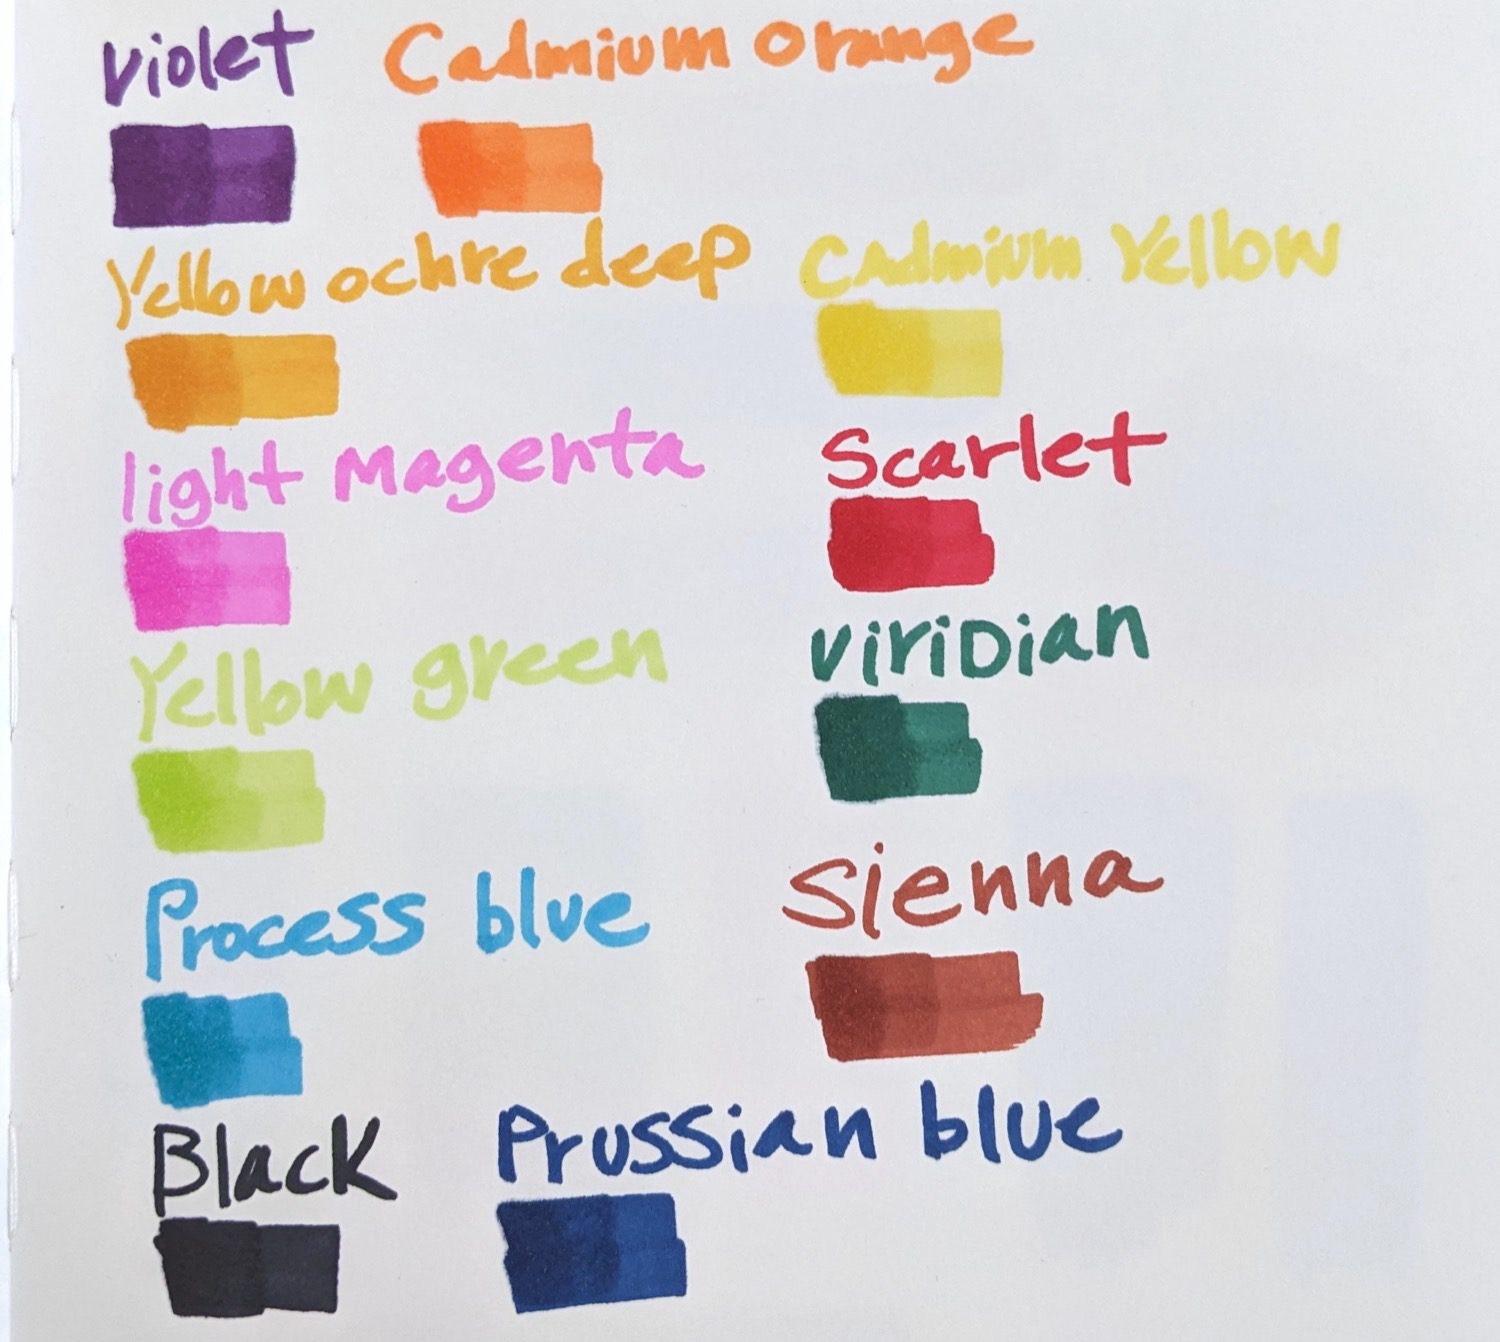 Violet Cadmium orange
Yellow ochre deep Cadmium Yellow
light Magenta Scarlet
Yellow green Viridian
Process blue Sienna
Black Prussian blue